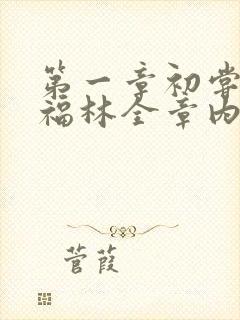 第一章初尝
福林全章内
菅葭